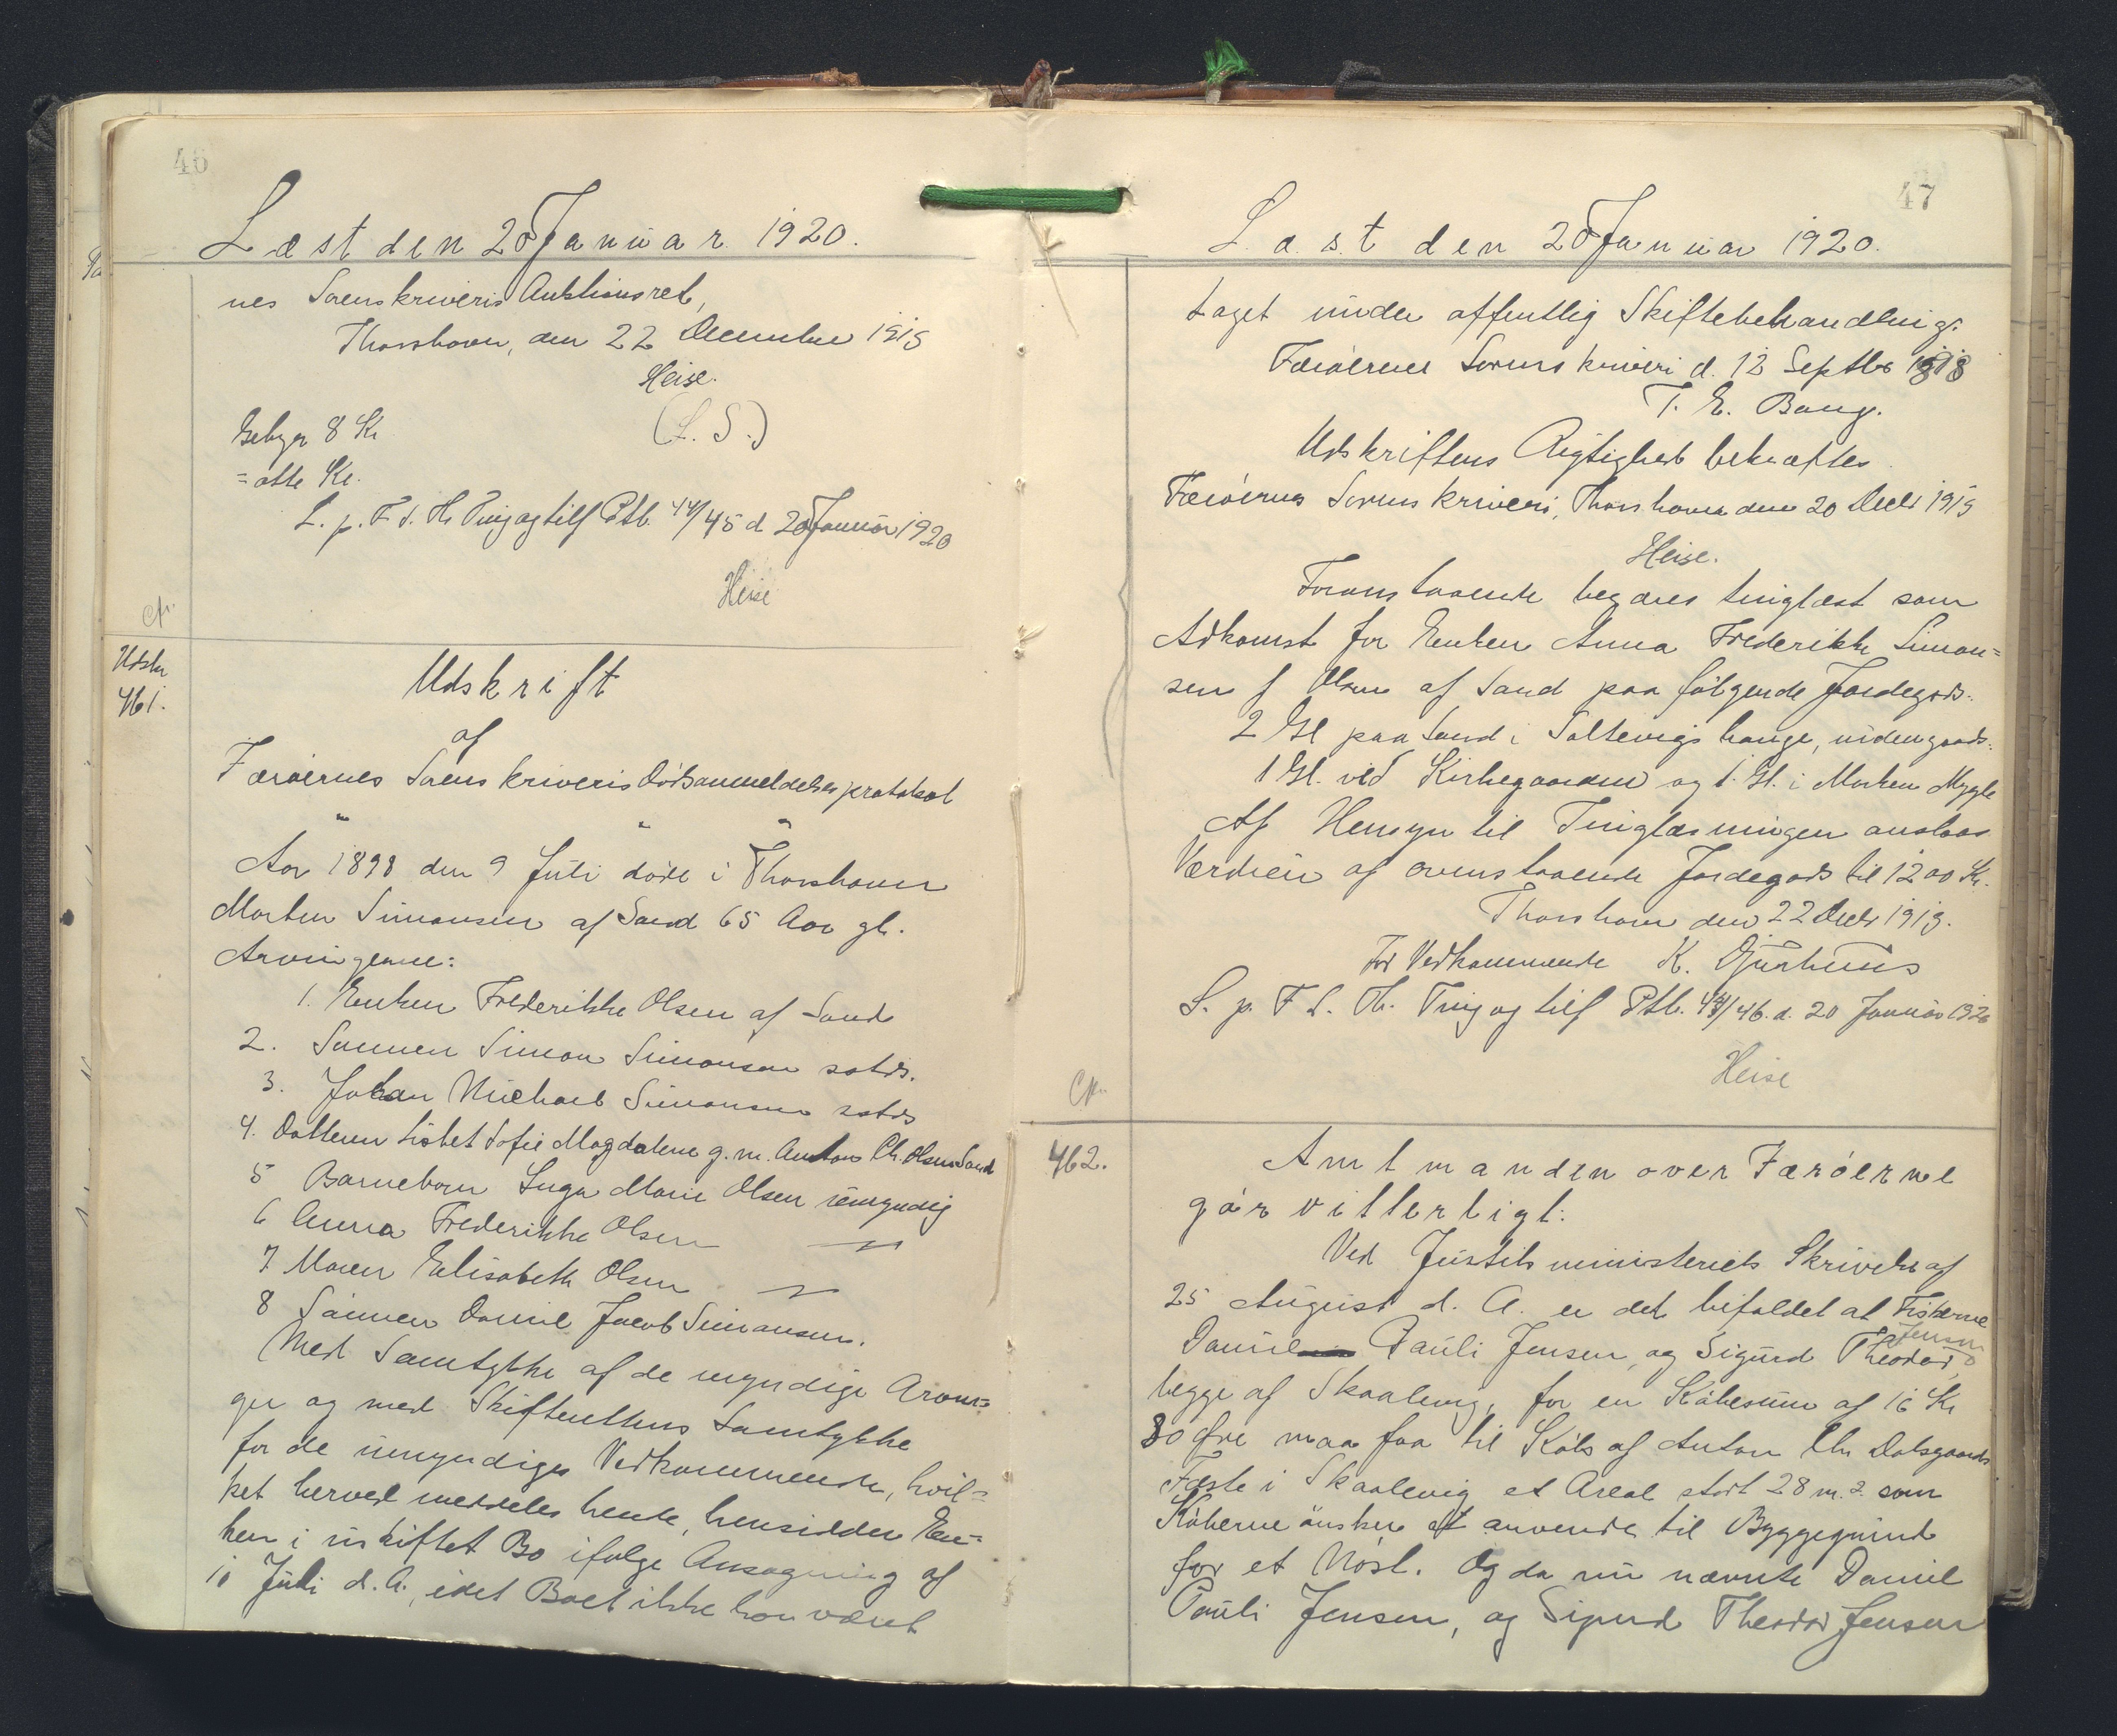 46
Læst den 20 Januar 1920.
nes Sorenskriveris Auktionsret,
Thorshavn, den 22 December 1919
Heise.
Gebyr 8 Kr (L. S.)
= otte Kr.
L. p. F. S. Th. Ting og tilf Ptb. 44/45 d 20 Januar 1920
Heise
Udskr
461.
Udskrift
af
Færøernes Sorenskriveris Dødsanmeldelsesprotokol
Aar 1898 den 9 Juli døde i Thorshavn
Morten Simonsen af Sand 65 Aar gl.
Arvingerne:
1. Enken Frederikke Olsen af Sand
2. Sønnen Simon Simonsen sstds.
3. Johan Michael Simonsen sstds
4. Datteren Lisbet Sofie Magdalene g. m. Anton Chr. Olsen Sand
5 Barnebarn Inga Marie Olsen umyndig
6 Anna Frederikke Olsen — " —
7 Maren Elisabeth Olsen — " —
8 Sønnen Daniel Jacob Simonsen.
Med Samtykke af de myndige Arvin=
ger og med Skifterettens Samtykke
for de umyndiges Vedkommende, hvil=
ket herved meddeles hende, hensidder En=
ken i uskiftet Bo ifølge Ansøgning af
10 Juli d. A., idet Boet ikke har været
47
Læst den 20 Januar 1920.
taget under offentlig Skiftebehandling.
Færøernes Sorenskriveri d. 12 Septbr
T. E. Bang.
Udskriftens Rigtighed bekræftes
Færøernes Sorenskriveri, Thorshavn den 20 Decbr 1919
Heise.
Foranstaaende begæres tinglæst som
Adkomst for Enken Anna Frederikke Simon=
sen f Olsen af Sand paa følgende Jordegods:
2 Gl paa Sand i Saltevigs hauge, udengaards.
1 Gl. ved Kirkegaarden og 1 Gl. i Marken
Af Hensyn til Tinglæsningen anslaas
Værdien af ovenstaaende Jordegods til 1200 Kr.
Thorshavn den 22 Decbr 1919.
For Vedkommende K. Djurhuus
L. p. F. S. Th. Ting og tilf Ptb. 44/46. d. 20 Januar 1920
Heise
462.
Amtmanden over Færøerne
gør vitterligt:
Ved Justitsministeriets Skrivelse af
25 August d. A. er det bifaldet at Fiskerne
Daniel Pauli Jensen og Sigurd Theodor Jensen
begge af Skaalevig, for en Købesum af 16 Kr
80 Øre maa faa til Købs af Anton Chr Dalsgaards
Fæste i Skaalevig et Areal stort 28 m. 2. som
Køberne ønsker at anvende til Byggegrund
for et Nøst. Og da nu nævnte Daniel
Pauli Jensen, og Sigurd Theodor Jensen